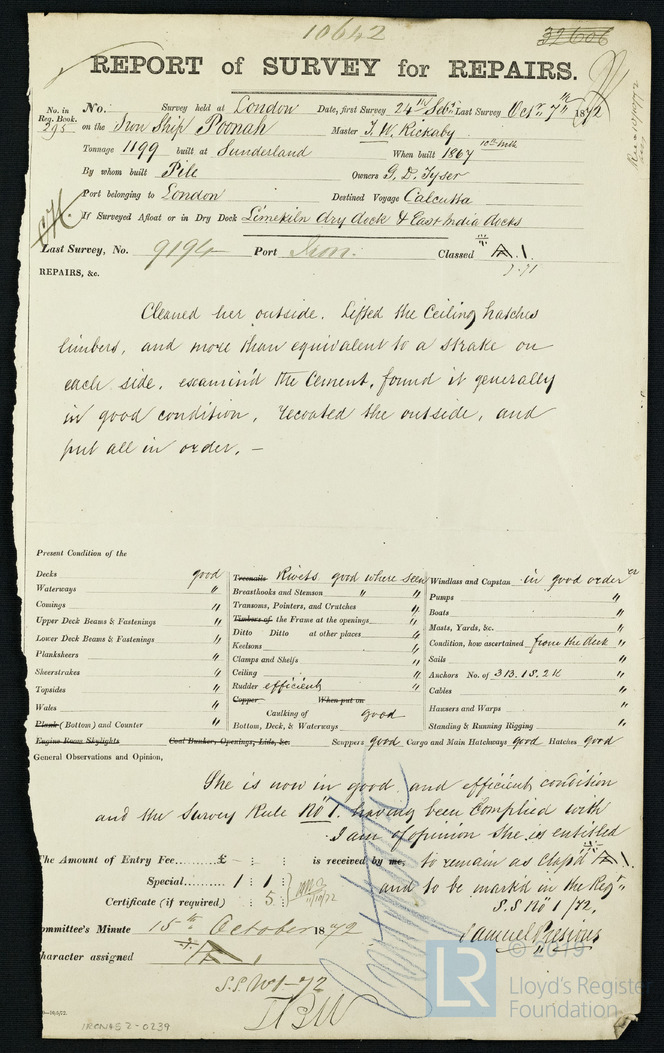 10642
32606
REPORT of SURVEY for REPAIRS.
No. in Reg. Book. 295
No. Survey held at London Date, first Survey 24th Sept Last Survey Octr 7th 1872
on the Iron Ship Poonah Master T. W. Rickaby
Tonnage 1199 built at Sunderland When built 1867 10th Mth
By whom built Pile Owners G. D. Tyser
Port belonging to London Destined Voyage Calcutta
If Surveyed Afloat or in Dry Dock Limekiln dry dock & East India docks
Last Survey, No. 9194 Port Iron. Classed A 1
7.71
REPAIRS, &c.
Cleaned her outside. Lifted the Ceiling hatches
limbers, and more than equivalent to a strake on
each side, examin'd the Cement, found it generally
in good condition, recoated the outside, and
put all in order. —
Present Condition of the
Decks good
Waterways "
Comings "
Upper Deck Beams & Fastenings "
Lower Deck Beams & Fastenings "
Planksheers "
Sheerstrakes "
Topsides "
Wales "
Plank (Bottom) and Counter "
Engine Room Skylights Coal Bunker, Openings, Lids, &c.
Treenails Rivets good where seen
Breasthooks and Stemson " "
Transoms, Pointers, and Crutches "
Timbers of the Frame at the openings "
Ditto Ditto at other places "
Keelsons "
Clamps and Shelfs "
Ceiling "
Rudder efficient "
Copper When put on
Caulking of good
Bottom, Deck, & Waterways
Windlass and Capstan in good order
Pumps "
Boats "
Masts, Yards, &c. "
Condition, how ascertained from the deck "
Sails "
Anchors No. of 3B. 1S. 2K "
Cables "
Hawsers and Warps "
Standing & Running Rigging "
Scuppers good Cargo and Main Hatchways good Hatches good
General Observations and Opinion,
She is now in good and efficient condition
and the Survey Rule No 1. having been Complied with
I am of opinion she is entitled
to remain as Class'd A 1
and to be mark'd in the Regr
S.S No 1/72,
Samuel Presious
The Amount of Entry Fee...... £ - : : is received by me,
Special...... 1 : 1 :
Certificate (if required) : 5 :
11/10/72
Committee's Minute 15th October 1872
Character assigned A 1
S.S. No 1-72
IRON452-0239
© 2019
LR
Lloyd's Register
Foundation